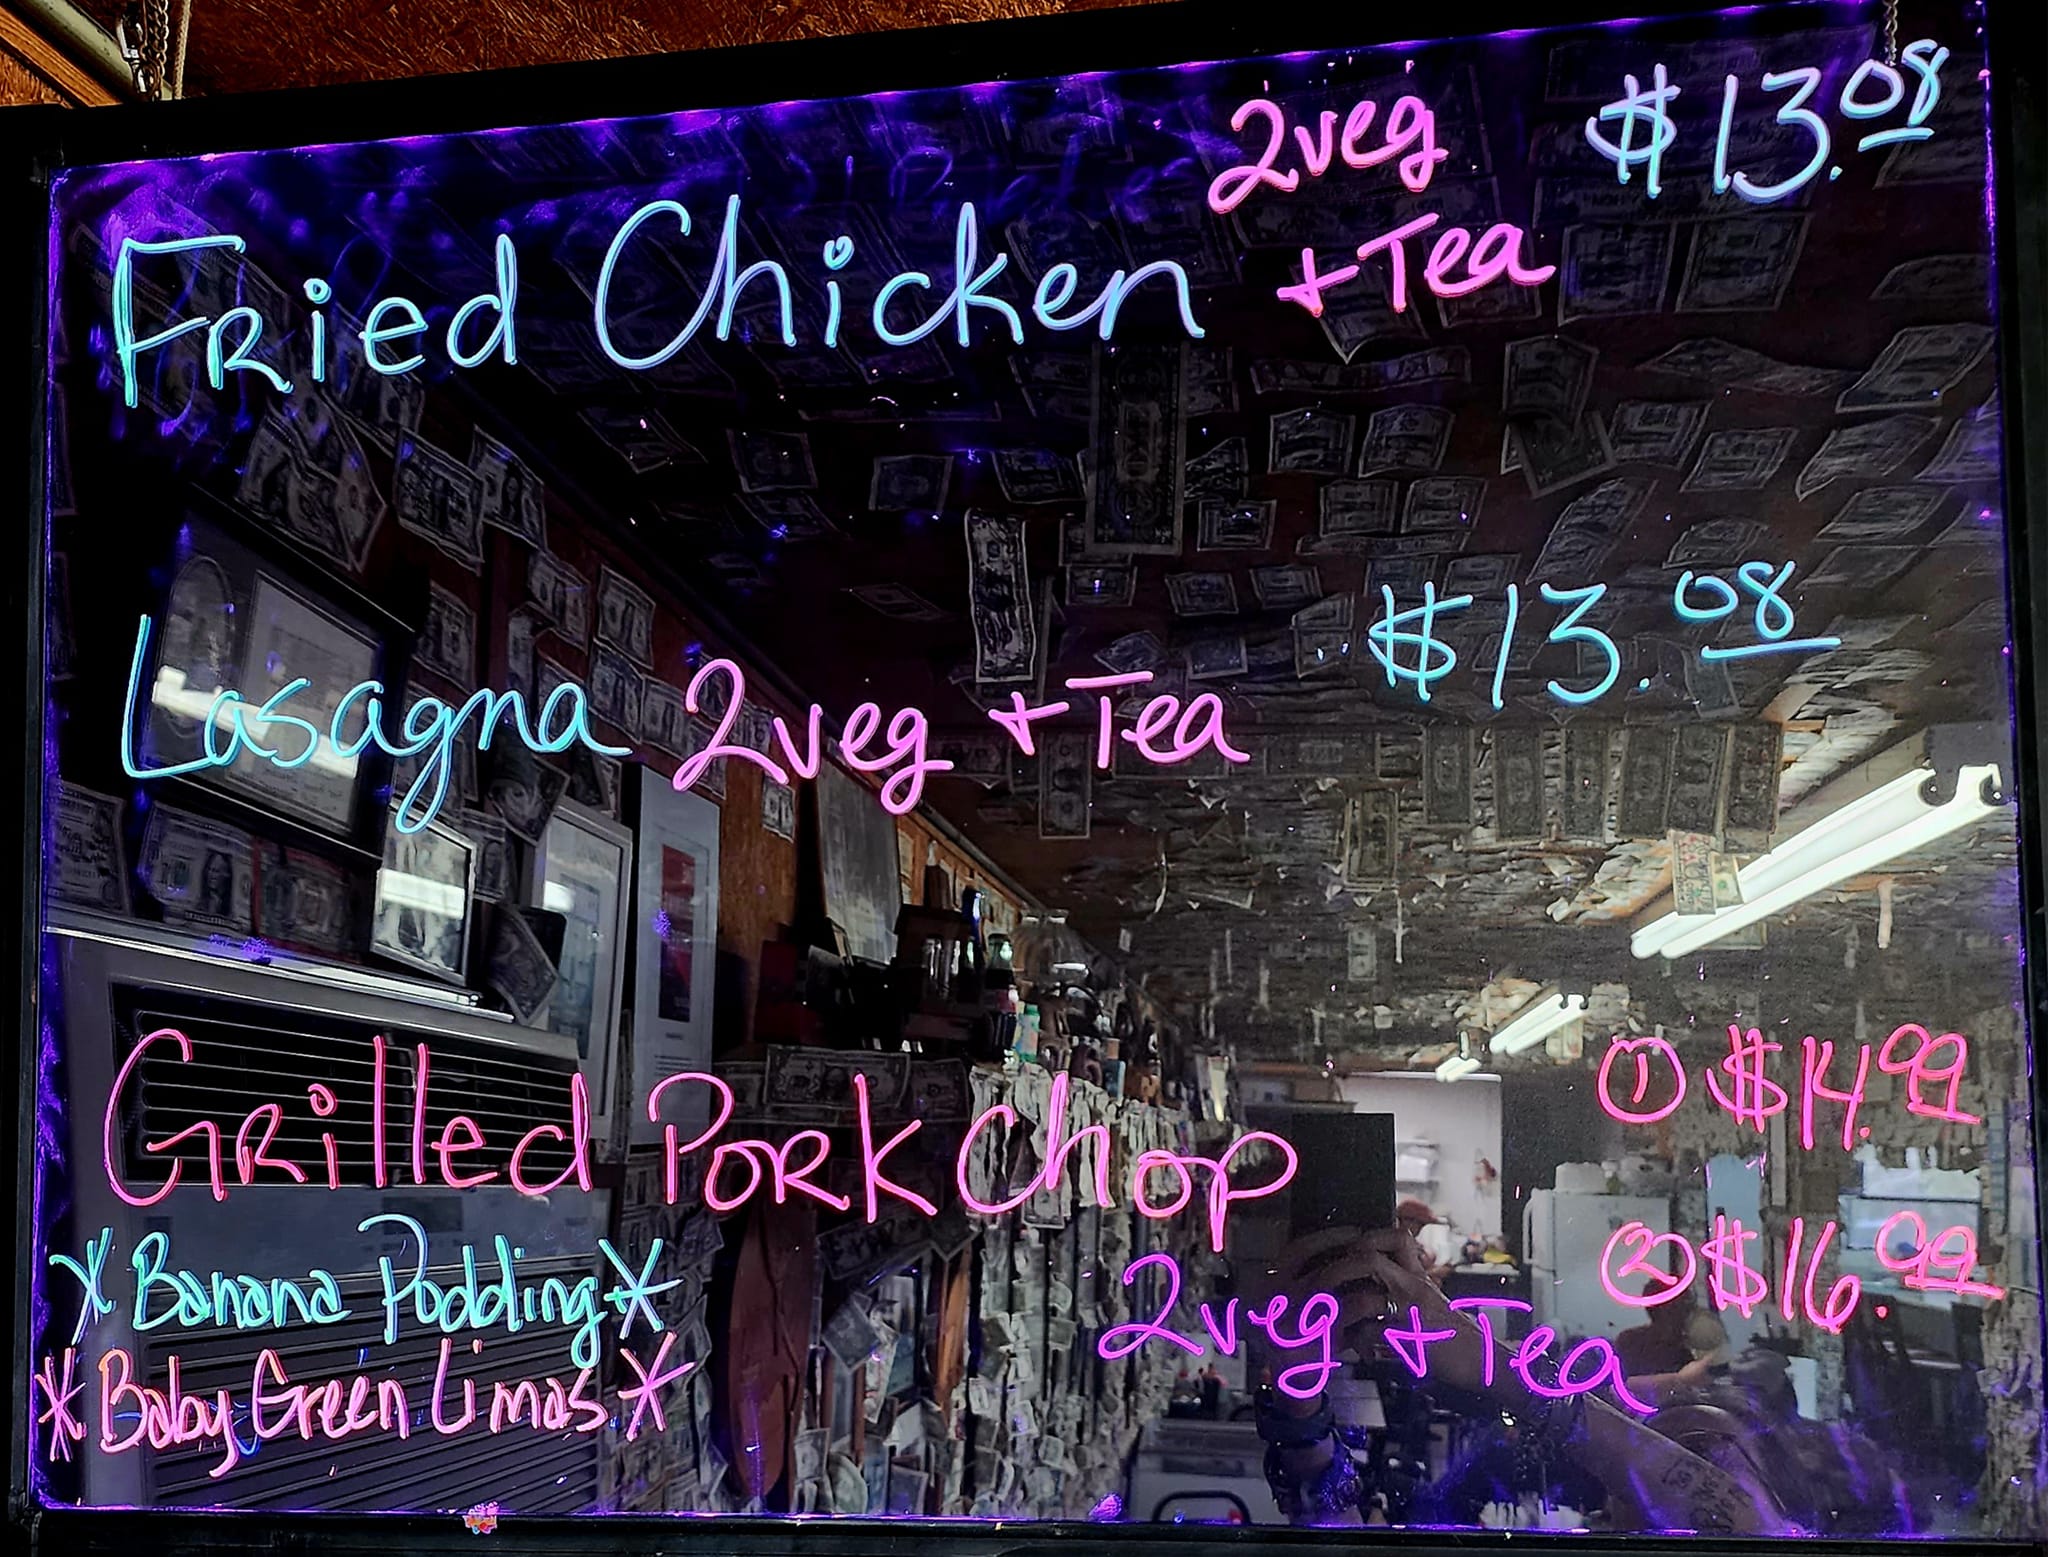 2veg $13.08
Fried Chicken + Tea
Lasagna 2veg + Tea $13.08
Grilled Pork Chop ① $14.99
② $16.99
* Banana Pudding *
2veg + Tea
* Baby Green Limas *